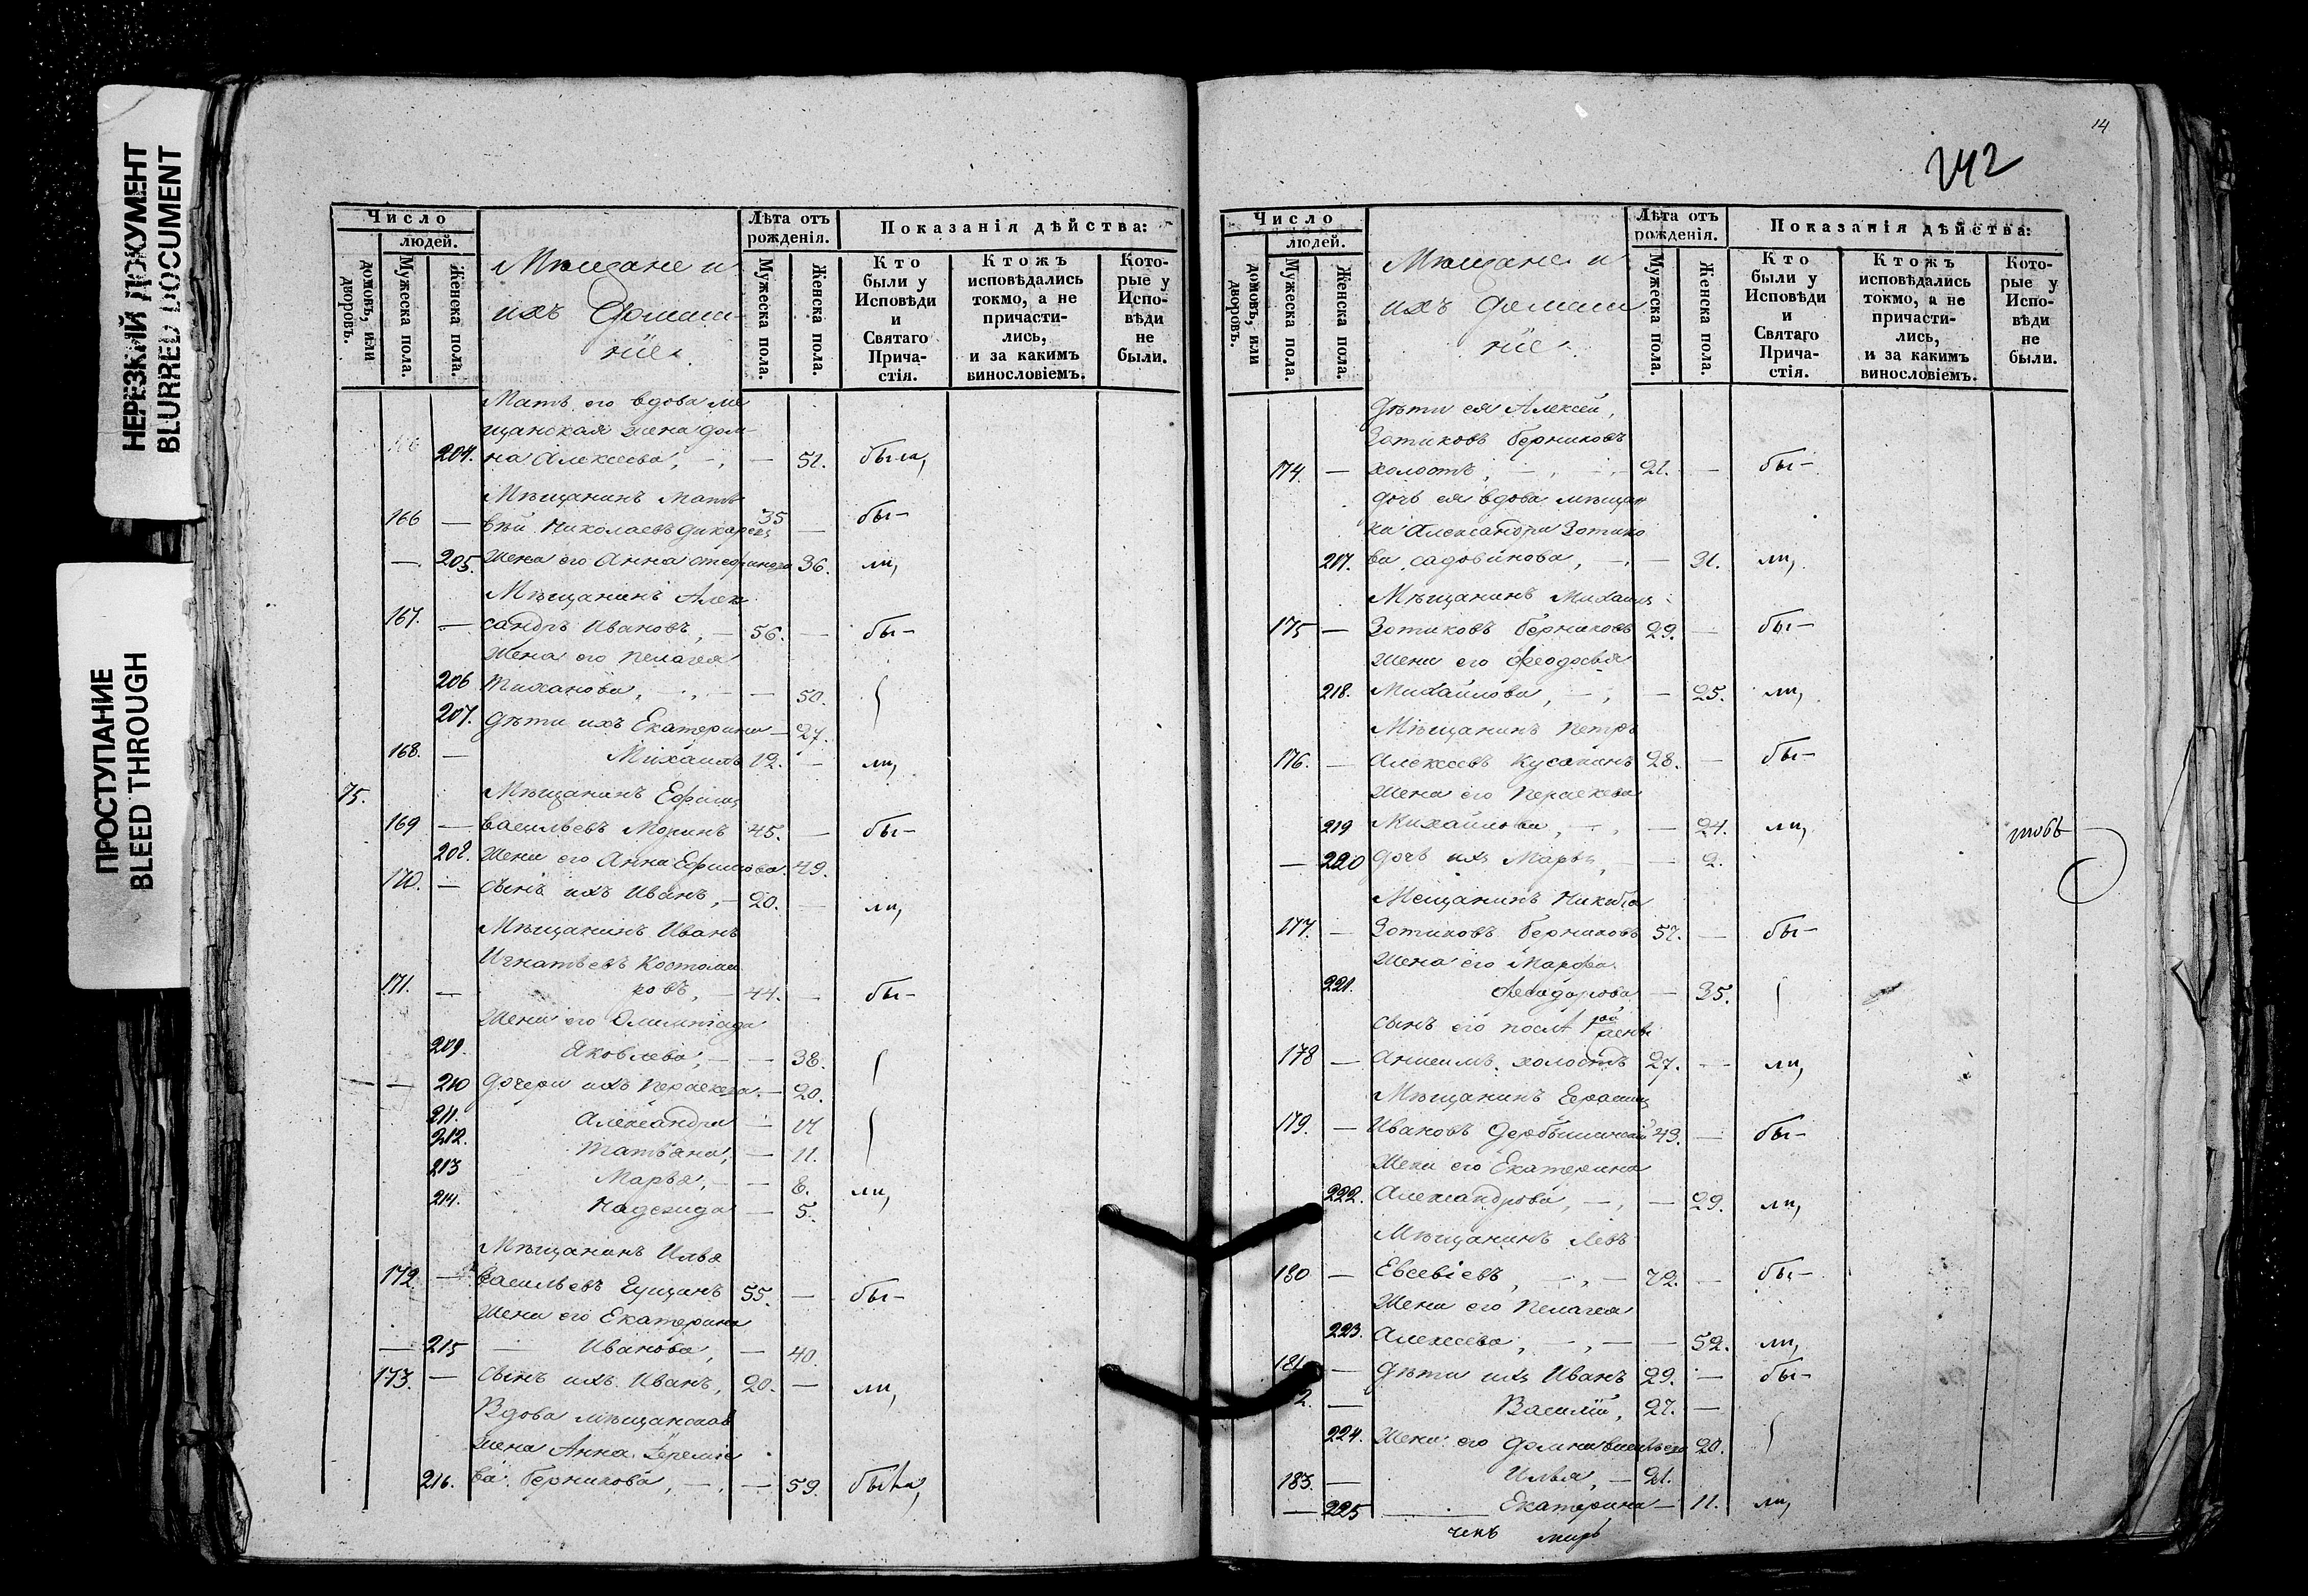 НЕРЕЗКИЙ ДОКУМЕНТ
BLURRED DOCUMENT
ПРОСТУПАНИЕ
BLEED THROUGH
Число
людей.
домовъ, или дворовъ.
Мужеска пола.
Женска пола.
Мѣщане и
ихъ домаш-
ніе.
Лѣта отъ рожденія.
Мужеска пола.
Женска пола.
Показанія дѣйства:
Кто были у Исповѣди и Святаго Прича-стія.
Ктожъ исповѣдались токмо, а не причасти-лись, и за какимъ винословіемъ.
Кото-рые у Испо-вѣди не были.
Мать его вдова ме
щанская жена дом-
204. на Алексеева, — 51. была,
Мѣщанинъ Мат
166 — вѣй Николаевъ 35 — бы-
— 205. Жена его Анна 36. ли,
Мѣщанинъ Алек
167. — сандръ Ивановъ, — 56. — бы-
Жена его Пелагея
206 — 50.
207. Дѣти ихъ Екатерина — 27.
168. — Михаилъ 12. — ли,
75. Мѣщанинъ Ефимъ
169 — Васильевъ Моринъ 45. — бы-
208. Жена его Анна Ефимова. 49.
170. — Сынъ ихъ Иванъ, — 20. — ли,
Мѣщанинъ Иванъ
Игнатьевъ Костома
171. — ровъ, — 44. — бы-
Жена его Олимпіада
209. Яковлева, — 38.
— — 210 Дочери ихъ Параскева — 20.
211. Александра —
212. Татьяна, — 11.
213 Марья, — 8. ли,
214. Надежда — 5.
Мѣщанинъ Илья
172 — Васильевъ 55. — бы-
Жена его Екатерина
— 215 — Иванова, — 40.
173. — Сынъ ихъ Иванъ, 20. — ли,
Вдова мѣщанская
жена Анна Еремѣе
216. ва Берникова, — 59. была,
14
242
Число
людей.
домовъ, или дворовъ.
Мужеска пола.
Женска пола.
Мѣщане и
ихъ домаш
ніе.
Лѣта отъ рожденія.
Мужеска пола.
Женска пола.
Показанія дѣйства:
Кто были у Исповѣди и Святаго Прича-стія.
Ктожъ исповѣдались токмо, а не причасти-лись, и за какимъ винословіемъ.
Кото-рые у Испо-вѣди не были.
Дѣти ея Алексей,
Зотиковъ Берниковъ
174. — холостъ, — 21. — бы-
дочь ея вдова мѣщан
ка Александра Зотико
217. ва Садовикова, — 31. ли,
Мѣщанинъ Михаилъ
175 — Зотиковъ Берниковъ 29. — бы-
Жена его Феодосья
218. Михайлова, — 25. ли,
Мѣщанинъ Петръ
176. — Алексеевъ 28. — бы-
Жена его Параскева
219 Михайлова, — 24. ли,
— 220 Дочь ихъ Марья, — 2.
Мещанинъ Никита
177. — Зотиковъ Берниковъ 57. — бы-
Жена его Марфа
221. Феодорова — 35.
Сынъ его послѣ 1ой жены
178 — холостъ 27. — ли,
Мѣщанинъ Герасимъ
179. — Ивановъ 43. — бы-
Жена его Екатерина
222. Александрова, — 29. ли,
Мѣщанинъ Левъ
180 — Евсевіевъ, — 72. — бы-
Жена его Пелагея
223. Алексеева, — 52. ли,
181. — Дѣти ихъ Иванъ 29. — бы-
2. — Василій, 27. —
224. Жена его Домна Васильева 20.
183. — Илья, — 21.
— 225 Екатерина — 11. ли,